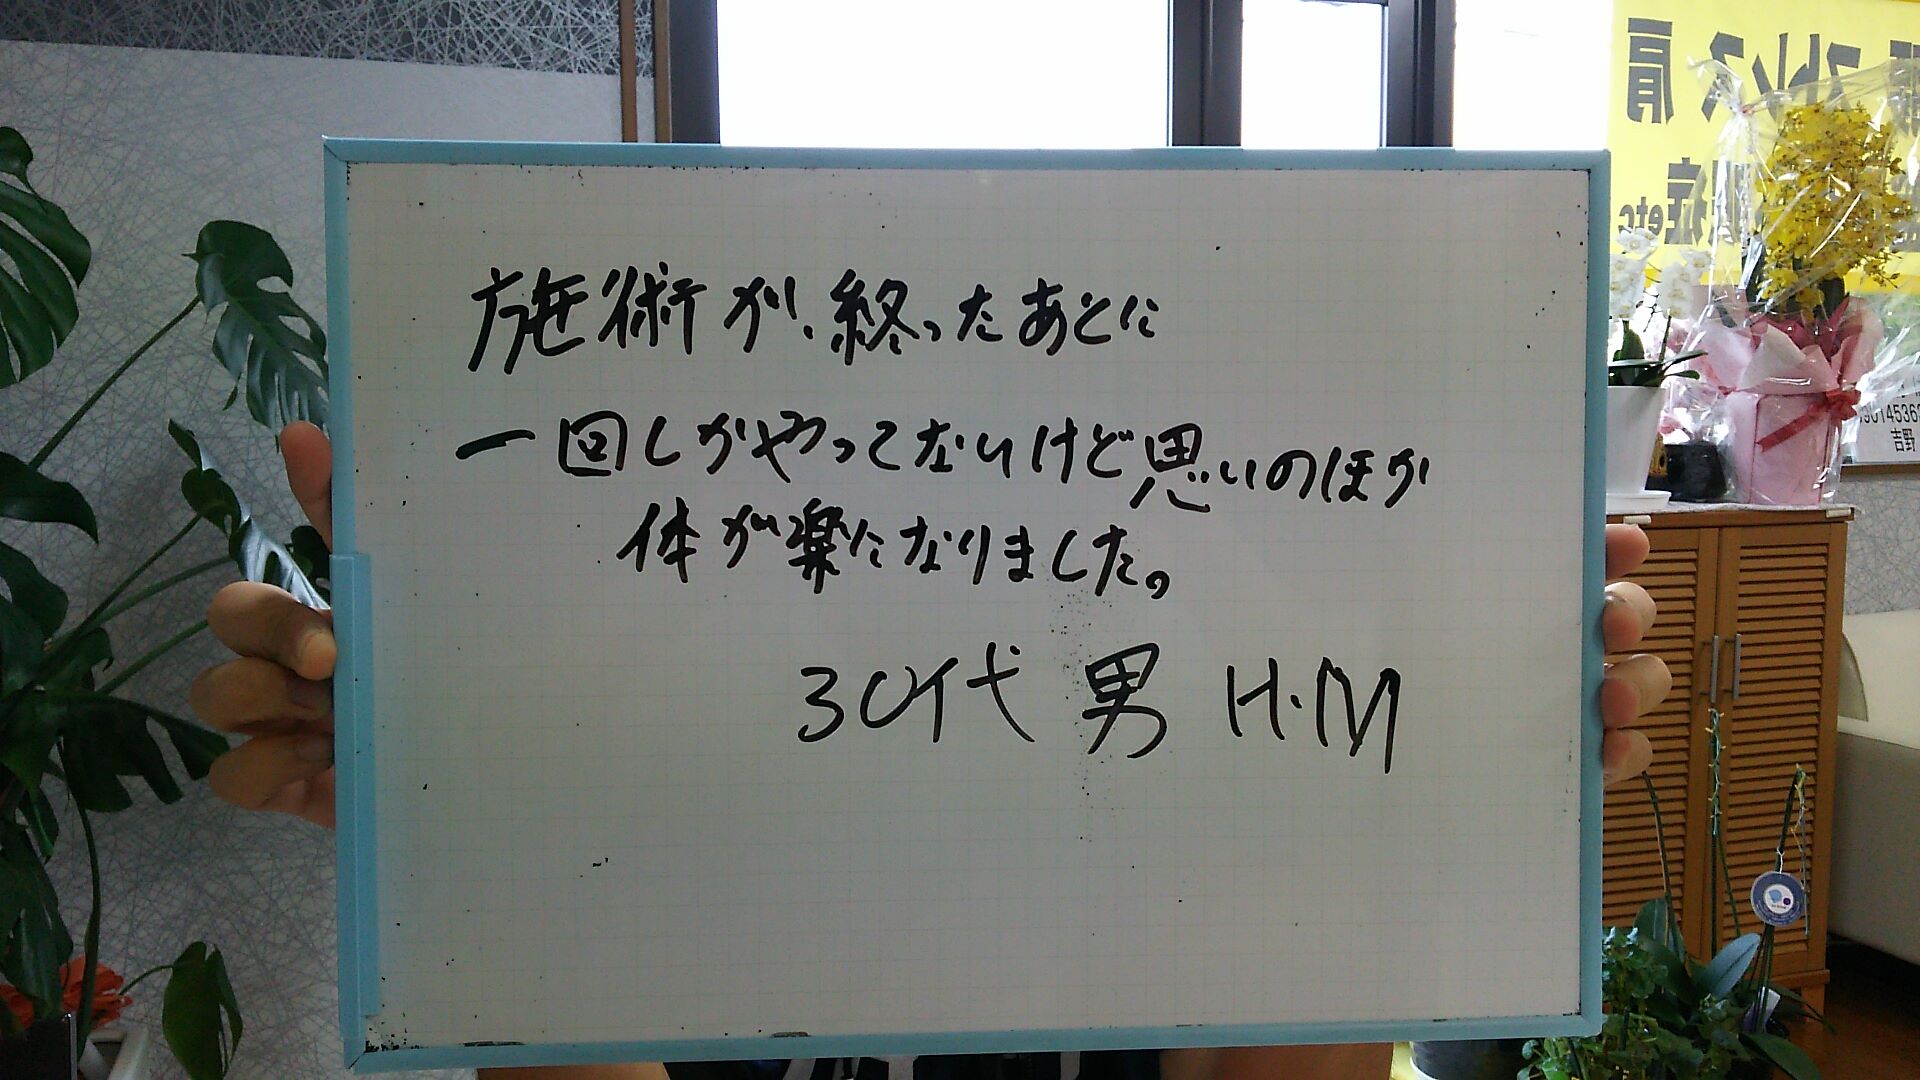 施術が、終ったあとに
一回しかやってないけど思いのほか
体が楽になりました。
30代 男 H.M
肩 ストレス
症 etc
吉野